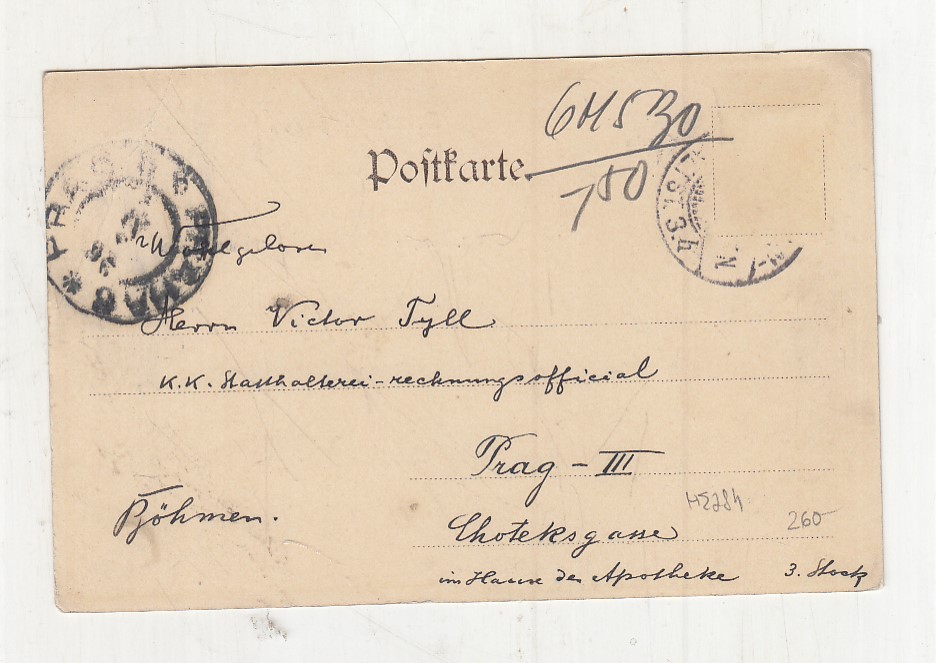 Postkarte.
780
Wohlgeboren
Herrn Victor Tyll
K.K. Statthalterei-rechnungsofficial
Prag - III
Böhmen.
Choteksgasse
im Hause der Apotheke 3. Stock
260-